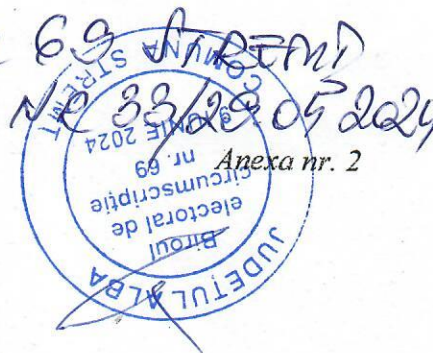 69 STREMȚ
NR 33/29 05 2024
Anexa nr. 2
JUDEȚUL ALBA
Biroul
electoral de
circumscripție
nr. 69
9 IUNIE 2024
COMUNA STREMȚ